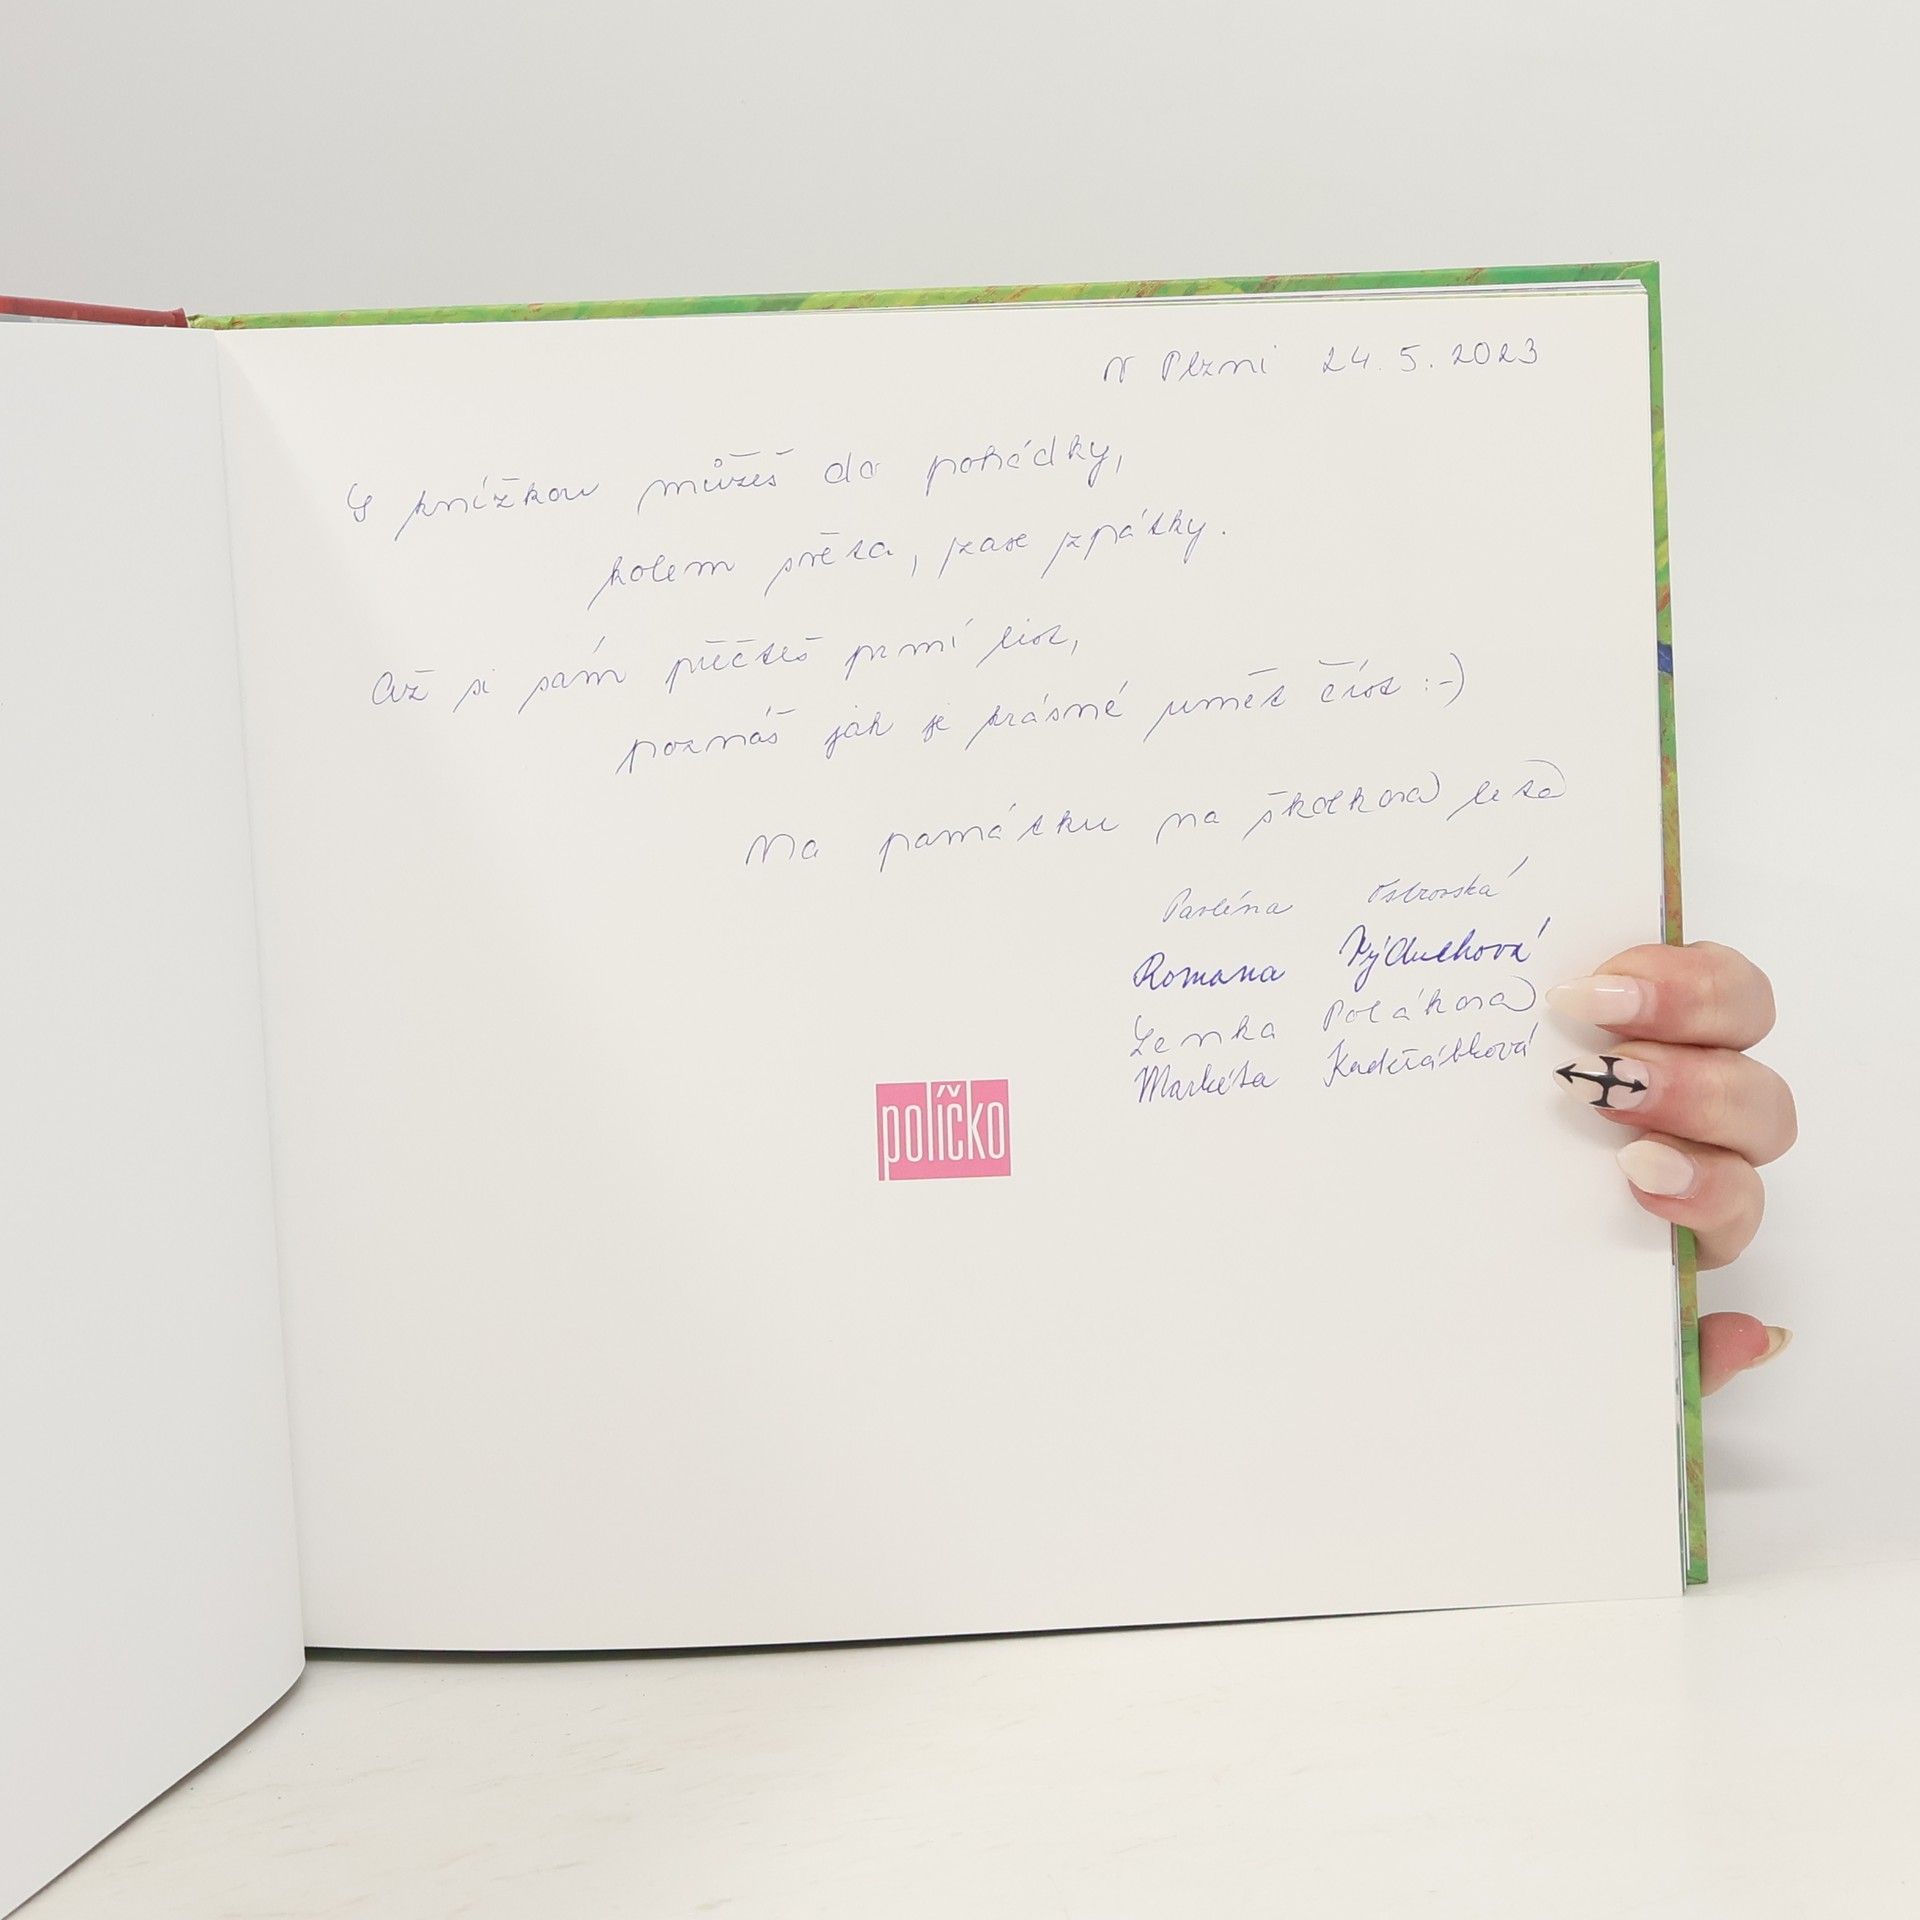 V Plzni 24.5.2023
S knížkou můžeš do pohádky,
kolem světa, zase zpátky.
Až si sám přečteš první list,
poznáš jak je krásné umět číst :-)
Na památku na školková léta
Pavlína Ostrovská
Romana Výduchová
Lenka Poláková
Markéta Kadeřábková
políčko